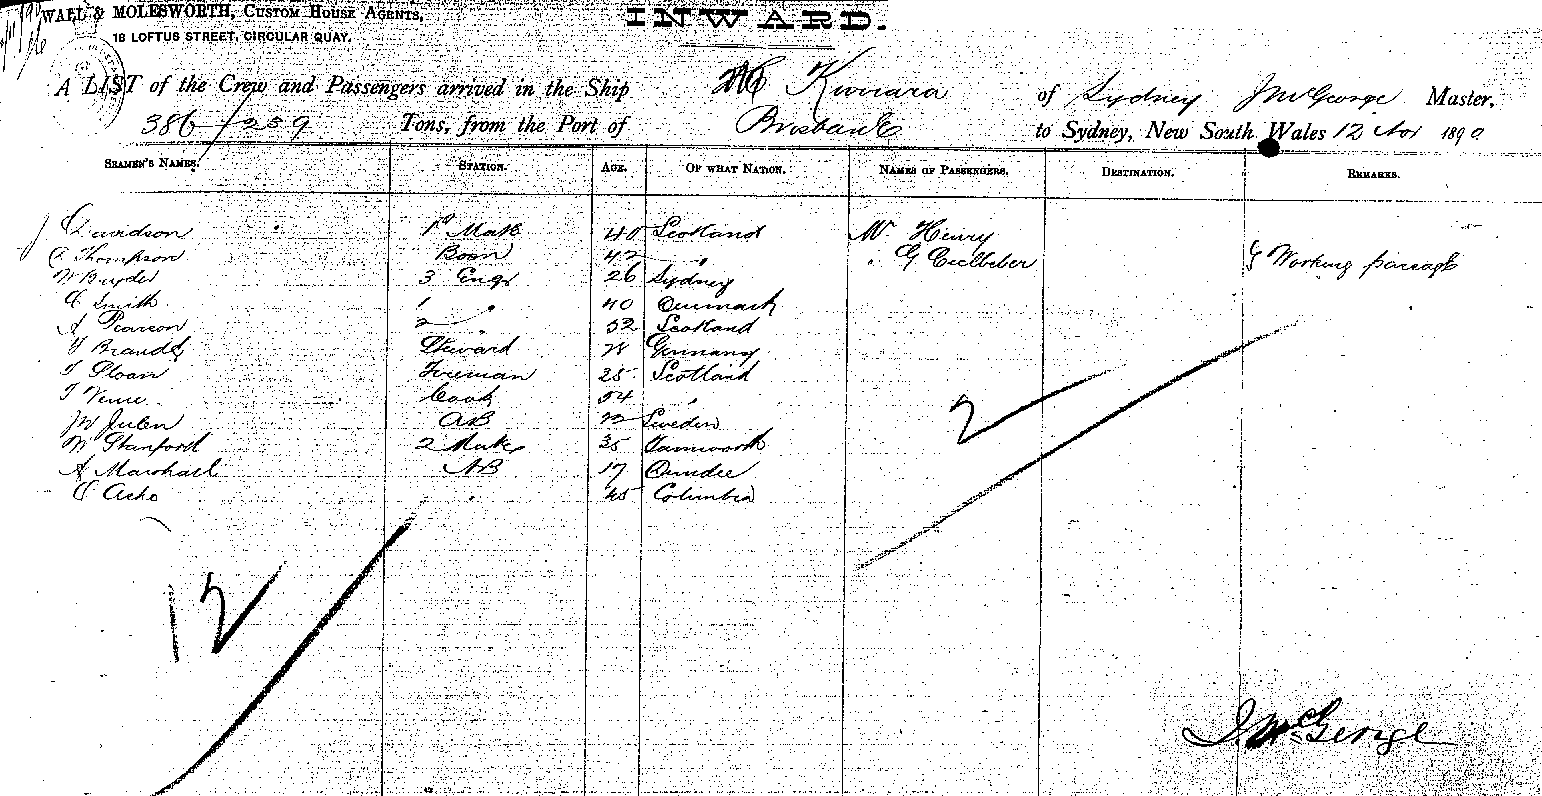 WALL & MOLESWORTH, CUSTOM HOUSE AGENTS,
18 LOFTUS STREET, CIRCULAR QUAY.
INWARD.
A LIST of the Crew and Passengers arrived in the Ship Kiwiara of Sydney J McGeorge Master,
386/259 Tons, from the Port of Brisbane to Sydney, New South Wales 12 1890
SEAMEN'S NAMES. STATION. AGE. OF WHAT NATION. NAMES OF PASSENGERS. DESTINATION. REMARKS.
Davidson 1st Mate 40 Scotland W Henry
Thompson Bosn 42 " " G
W 3 Engr 26 Sydney } Working passage
C Smith 1 " 40 Denmark
A Pearson 2 " 52 Scotland
Brandt Steward Germany
T Sloan Fireman 25 Scotland
T Cook 54 "
AB Sweden
W Stanford 2 Mate 35 Tamworth
A Marshall AB 17 Dundee
" 45 Columbia
2
12
J. McGeorge